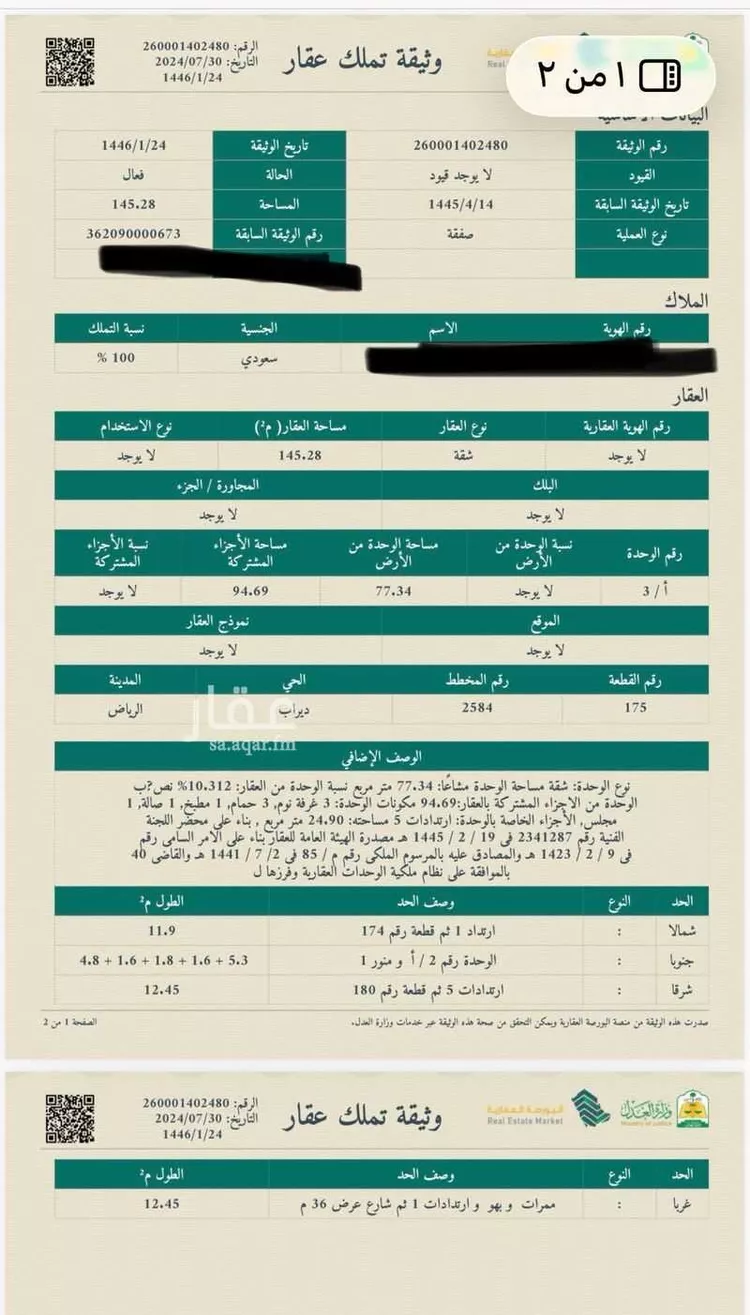 وثيقة تملك عقار
الرقم: 260001402480
التاريخ: 2024/07/30
1446/1/24
١ من ٢
البيانات الأساسية
رقم الوثيقة 260001402480 تاريخ الوثيقة 1446/1/24
القيود لا يوجد قيود الحالة فعال
تاريخ الوثيقة السابقة 1445/4/14 المساحة 145.28
نوع العملية صفقة رقم الوثيقة السابقة 362090000673
الملاك
رقم الهوية الاسم الجنسية نسبة التملك
سعودي 100 %
العقار
رقم الهوية العقارية نوع العقار مساحة العقار( م²) نوع الاستخدام
لا يوجد شقة 145.28 لا يوجد
البلك المجاورة / الجزء
لا يوجد لا يوجد
رقم الوحدة نسبة الوحدة من الأرض مساحة الوحدة من الأرض مساحة الأجزاء المشتركة نسبة الأجزاء المشتركة
أ / 3 لا يوجد 77.34 94.69 لا يوجد
الموقع نموذج العقار
لا يوجد لا يوجد
رقم القطعة رقم المخطط الحي المدينة
175 2584 ديراب الرياض
عقار
sa.aqar.fm
الوصف الإضافي
نوع الوحدة: شقة مساحة الوحدة مشاعًا: 77.34 متر مربع نسبة الوحدة من العقار: 10.312% نص?ب
الوحدة من الاجزاء المشتركة بالعقار:94.69 مكونات الوحدة: 3 غرفة نوم, 3 حمام, 1 مطبخ, 1 صالة, 1
مجلس, الأجزاء الخاصة بالوحدة: ارتدادات 5 مساحته: 24.90 متر مربع , بناء على محضر اللجنة
الفنية رقم 2341287 فى 19 / 2 / 1445 هـ مصدرة الهيئة العامة للعقار بناء على الامر السامى رقم
40 فى 9 / 2 / 1423 هـ والمصادق عليه بالمرسوم الملكى رقم م / 85 فى 2/ 7 / 1441 هـ والقاضى
بالموافقة على نظام ملكية الوحدات العقارية وفرزها ل
الحد النوع وصف الحد الطول م²
شمالا : ارتداد 1 ثم قطعة رقم 174 11.9
جنوبا : الوحدة رقم 2 / أ و منور 1 5.3 + 1.6 + 1.8 + 1.6 + 4.8
شرقا : ارتدادات 5 ثم قطعة رقم 180 12.45
صدرت هذه الوثيقة من منصة البورصة العقارية ويمكن التحقق من صحة هذه الوثيقة عبر خدمات وزارة العدل.
الصفحة 1 من 2
وزارة العدل
Ministry of Justice
البورصة العقارية
Real Estate Market
وثيقة تملك عقار
الرقم: 260001402480
التاريخ: 2024/07/30
1446/1/24
الحد النوع وصف الحد الطول م²
غربا : ممرات و بهو و ارتدادات 1 ثم شارع عرض 36 م 12.45